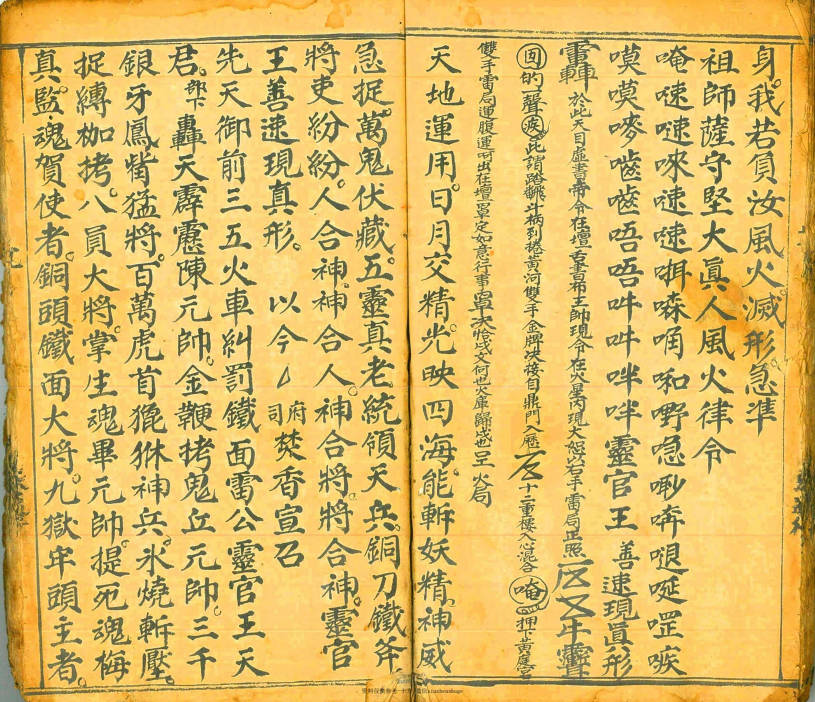 身我若負汝風火滅形急準
祖師薩守堅大眞人風火律令
唵㖀㖀唻㖀㖀㖇㗸唃啝嘢㖷唦㗢㖵唌㘢㖶
嘆嘆嘇嚙嚙唔唔吽吽哖哖靈官王 善速現眞形
於此天目虛書 令在壇 右書 王帥現令在火星內現大 以右手雷局正照
的一聲 此謂踏 斗柄到捲黃河雙手金牌决接自鼎門歷 十二重樓入心混合 唵 押下黃
雙手雷局運腹運呵出在壇罩定如意行事 次 戌文何也火庫歸戌也呈火局
天地運用日月交精光映四海能斬妖精神威
急捉萬鬼伏藏五靈真老統領天兵銅刀鐵斧
將吏紛紛人合神神合人神合將將合神靈官
王善速現真形 以今 府司焚香宣召
先天御前三五火車糾罰鐵面雷公靈官王天
君部下轟天霹靂陳元帥金鞭拷鬼丘元帥三千
銀牙鳳觜猛將百萬虎首猊貅神兵氷燒斬壓
捉縛枷拷八員大將掌生魂畢元帥提死魂梅
真監魂賀使者銅頭鐵面大將九獄牢頭主者